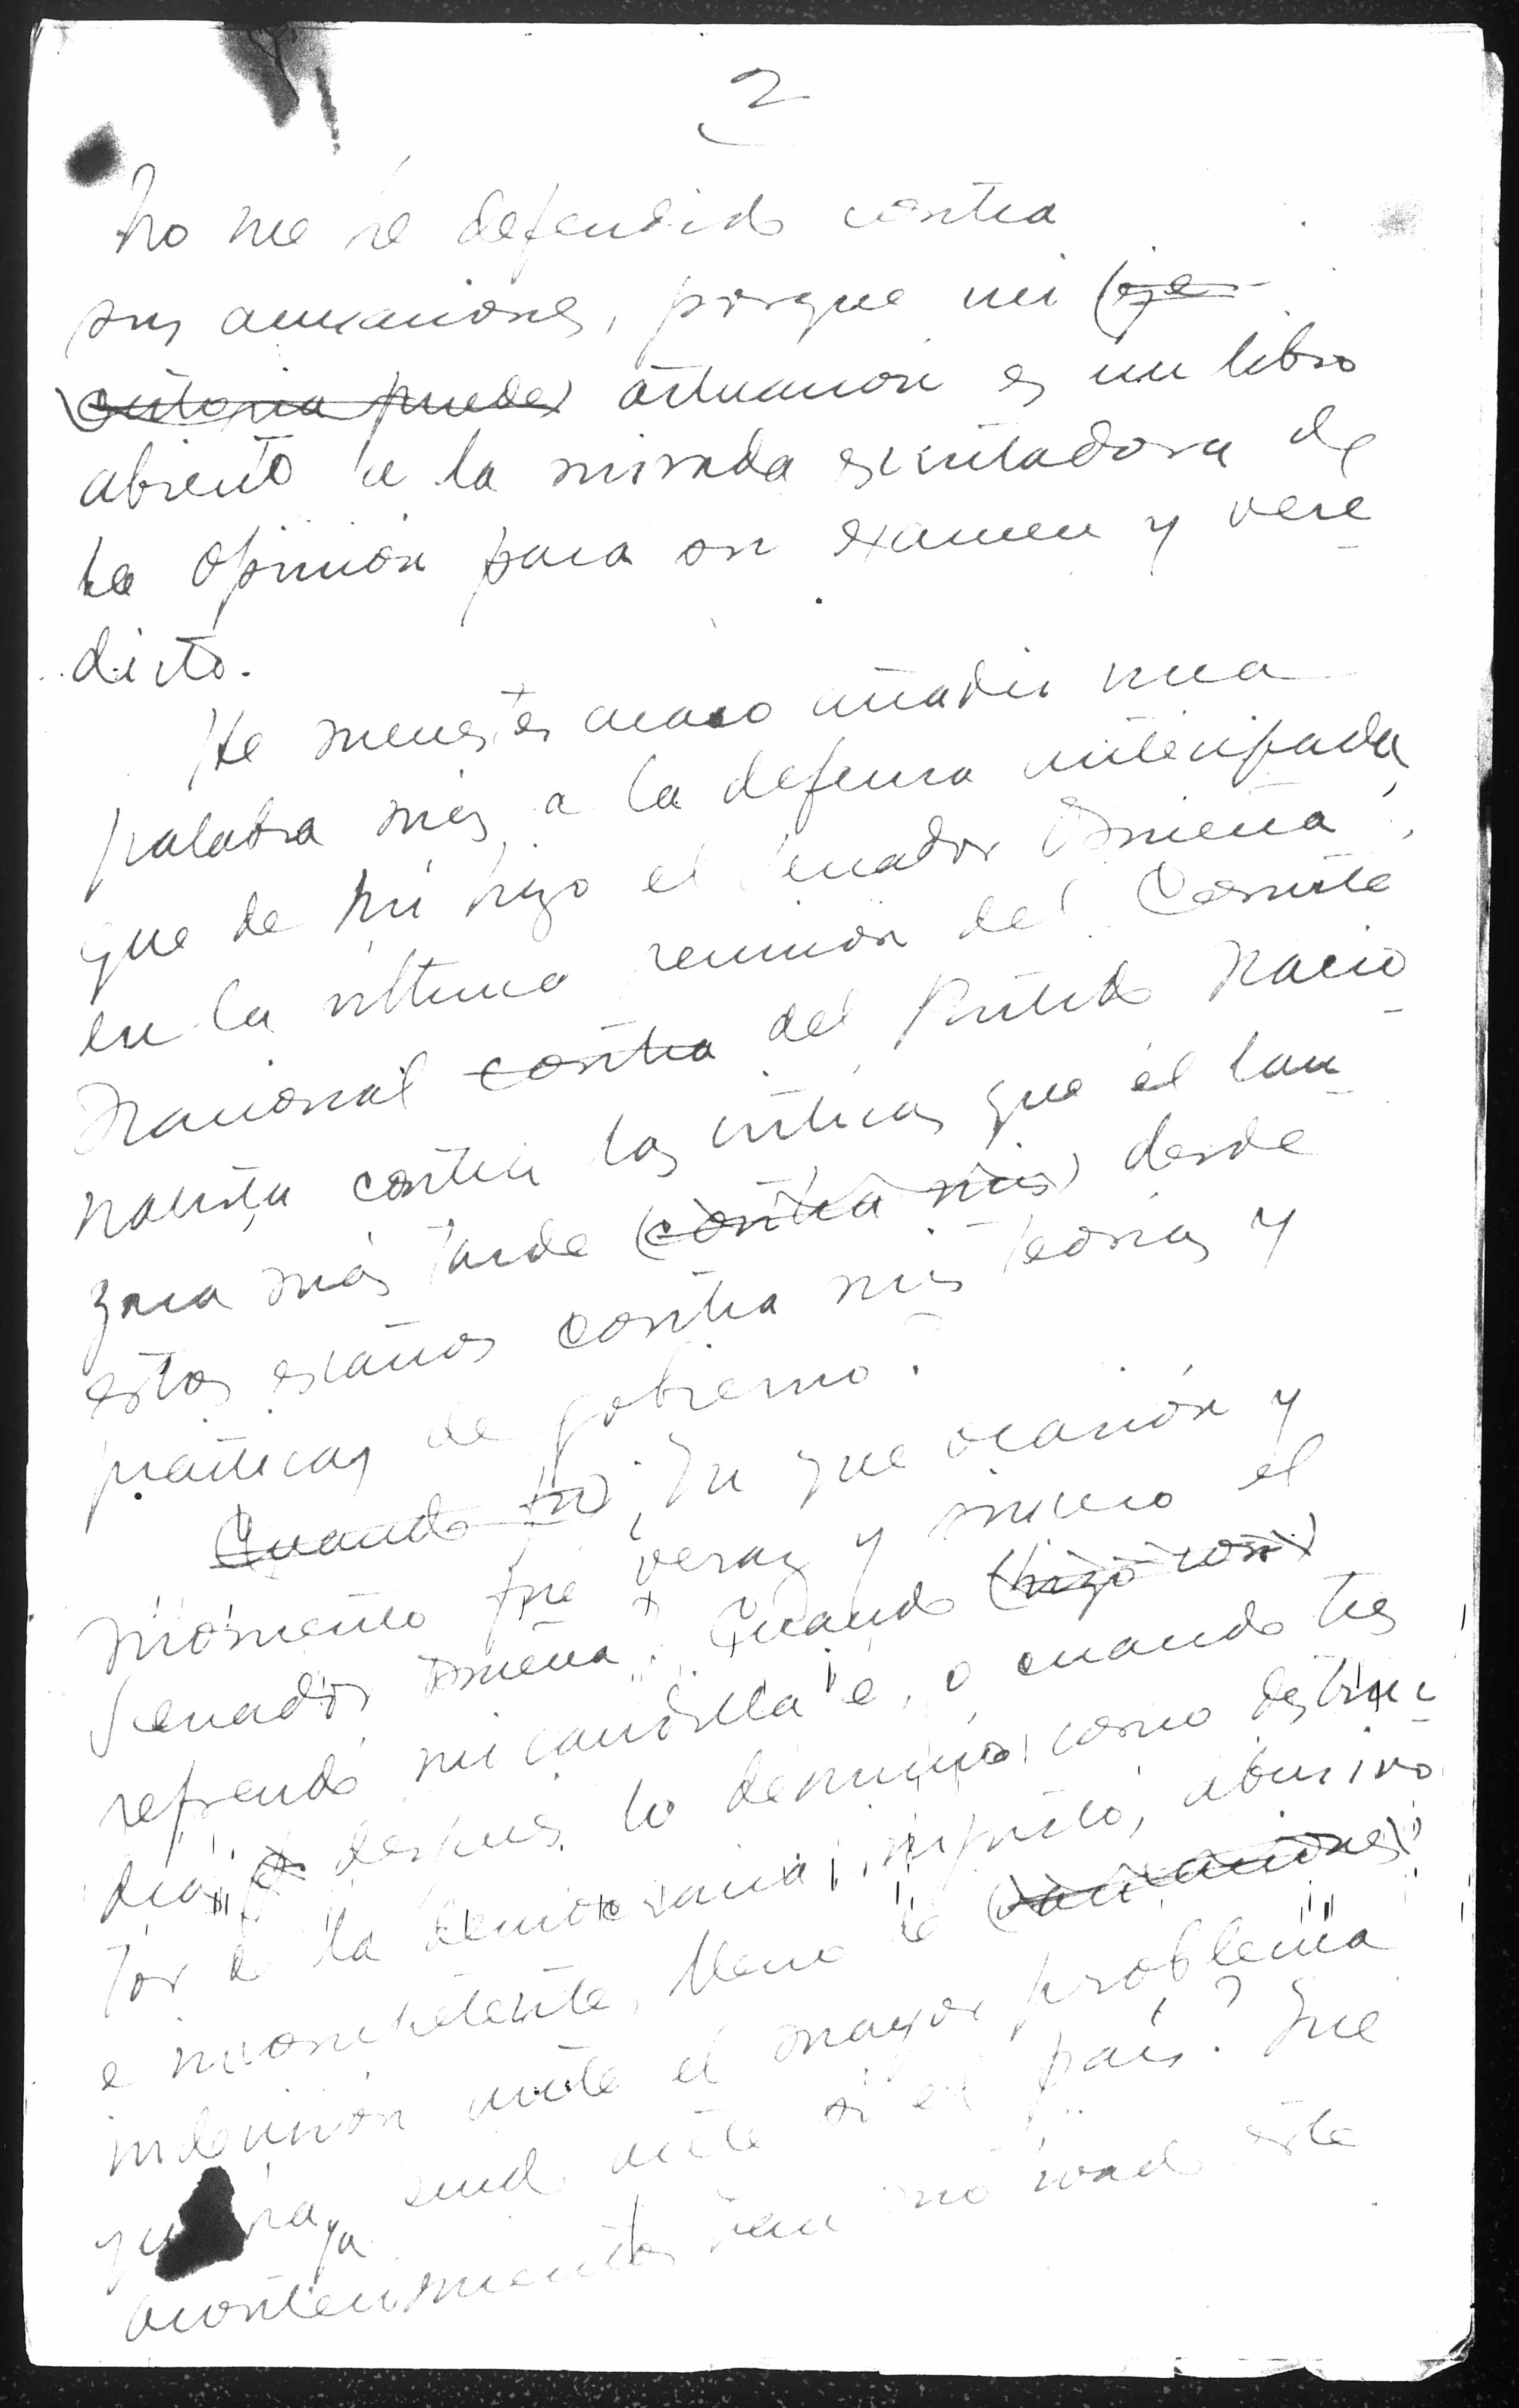 2
No me he defendido contra
sus acusaciones, porque mi (eje-
cutoria puede) actuación es un libro
abierto a la mirada escrutadora de
la opinión para su examen y vere-
dicto.
He menester acaso añadir una
palabra más a la defensa anticipada
que de mí hizo el Senador Osmeña,
en la última reunión del Comité
Nacional contra del Partido Nacio-
nalista contra las críticas que él lan-
zara más tarde (contra mis) desde
estos escaños contra mis teorías y
prácticas de gobierno?
Cuando fue ¿En que ocasión y
momento fue veraz y sincero el
Senador Osmeña? Cuando (hizo con)
refrendó mi candidatura, o cuando tres
días después lo denunció como destruc-
tor de la democracia, inepto, abusivo
e incompetente, lleno de (vacilaciones)
indecisión ante el mayor problema
que haya tenido ante sí el país? Qué
acontecimientos han motivado este